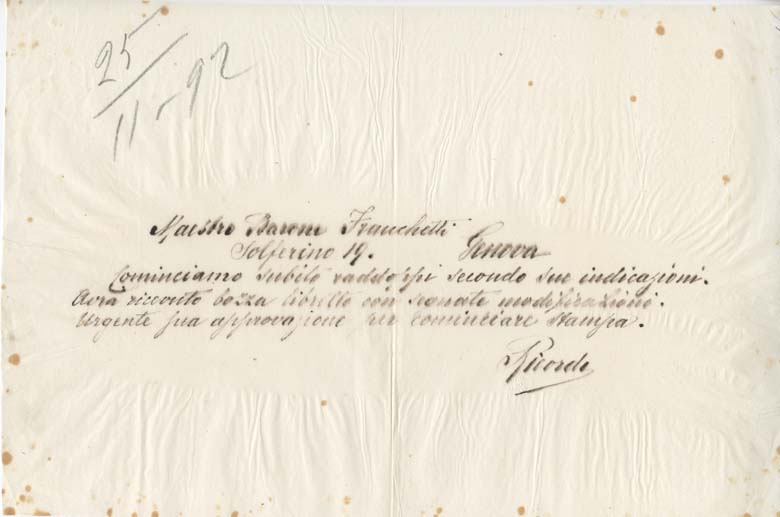 25/11-92
Maestro Barone Franchetti
Solferino 19. Genova
Cominciamo subito raddoppi secondo sue indicazioni.
Avrà ricevuto bozza libretto con segnate modificazioni.
Urgente sua approvazione per cominciare stampa.
Ricordi